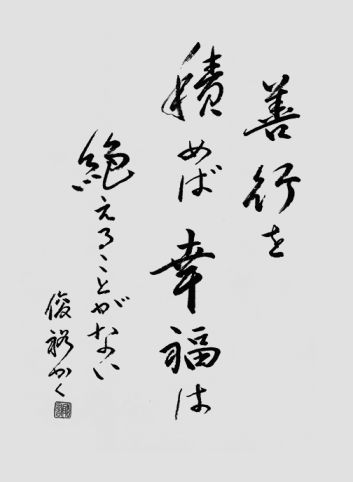 善行を
積めば幸福は
絶えることがない
俊裕かく